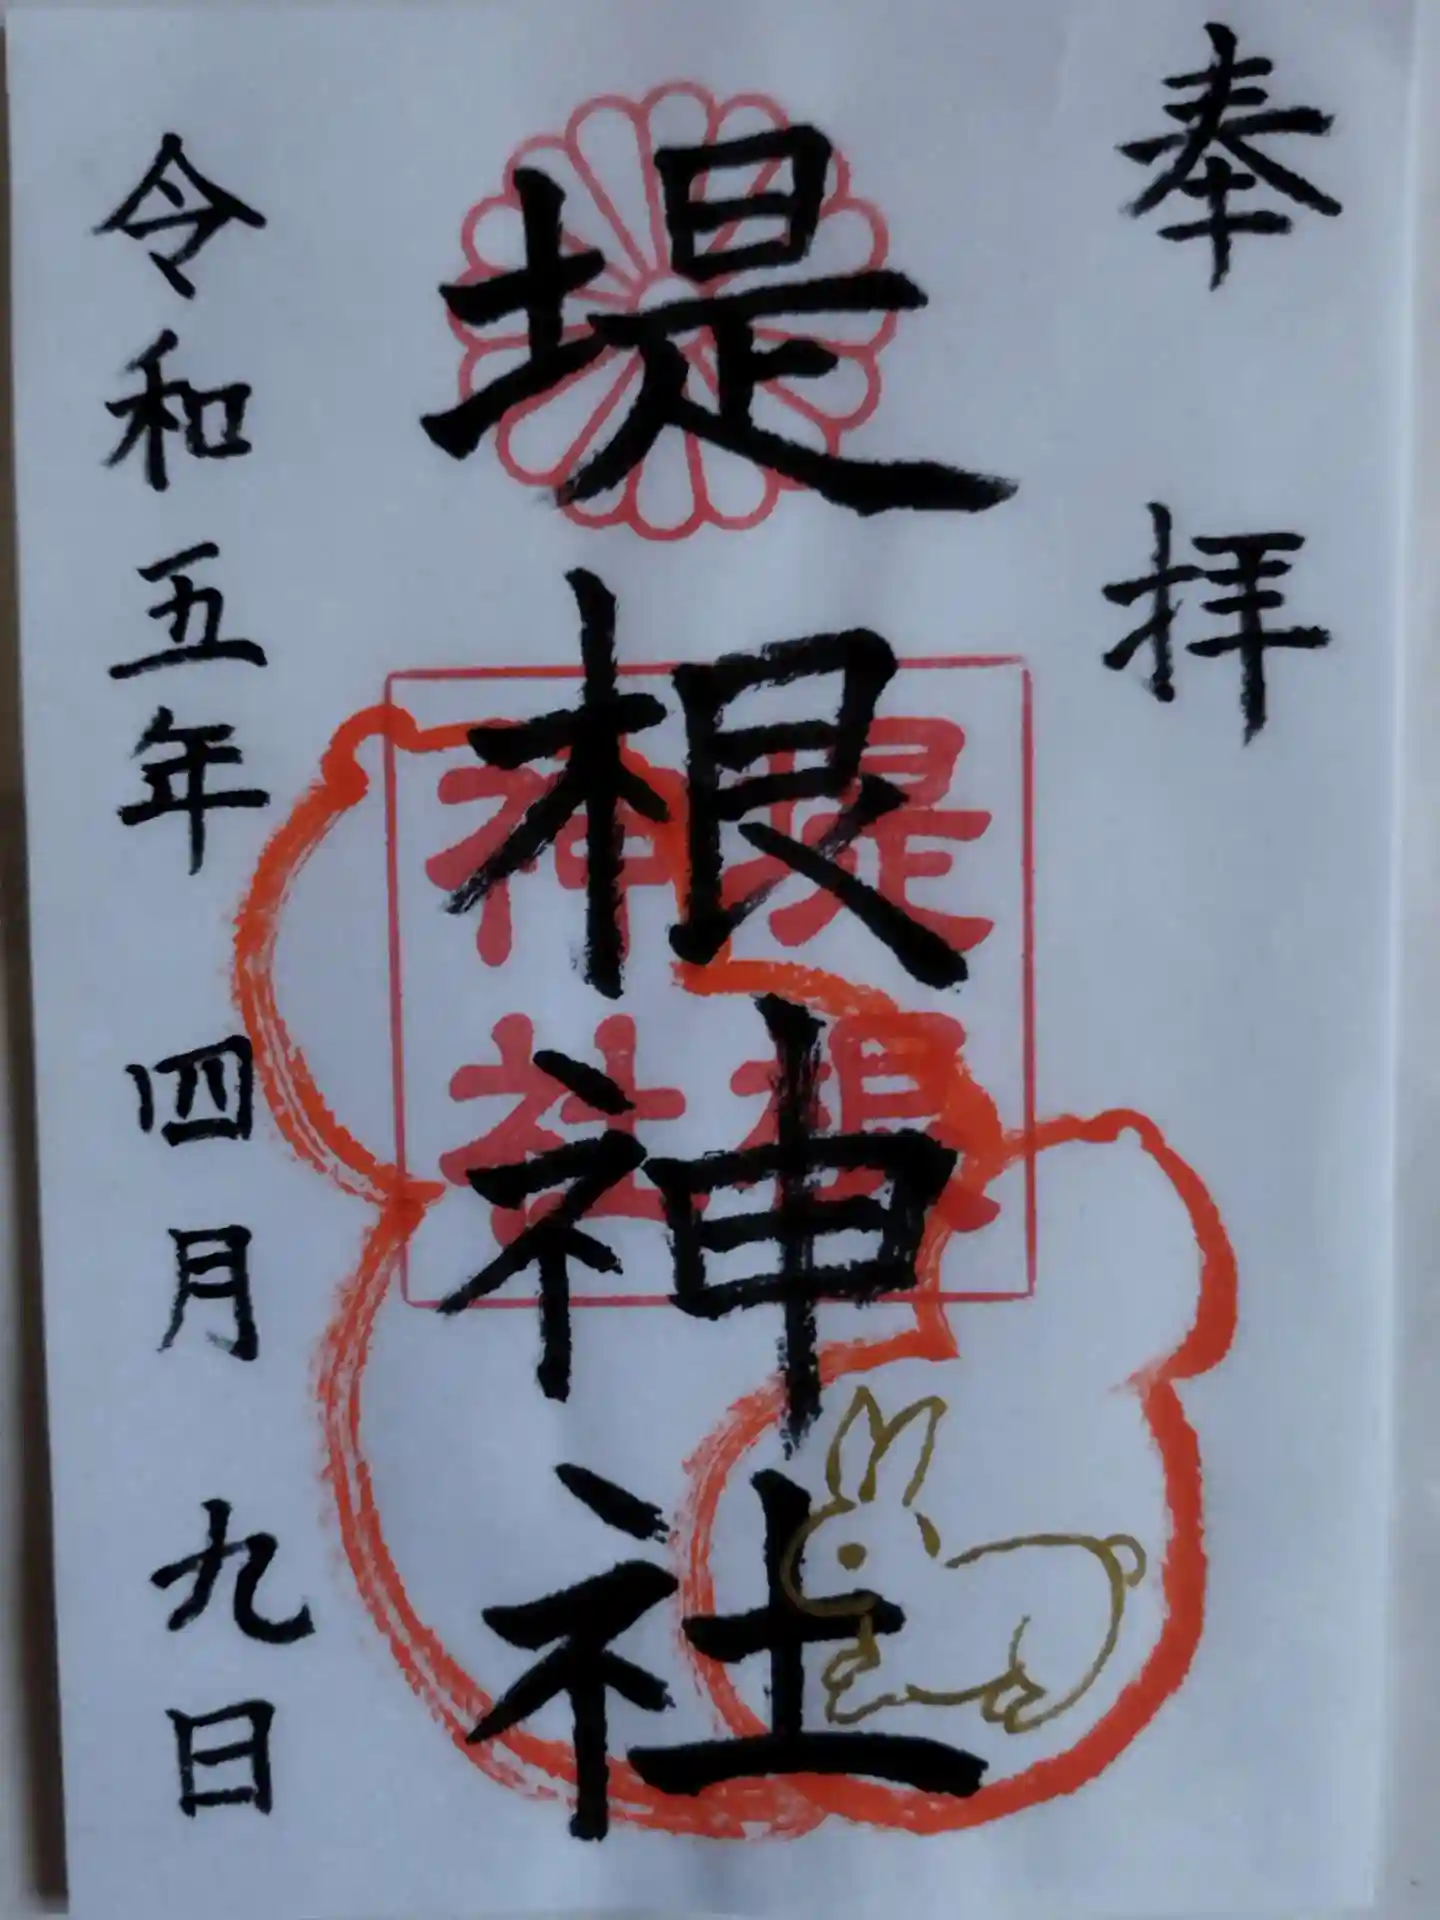 奉拝
堤根神社
堤根
神社
令和五年四月九日